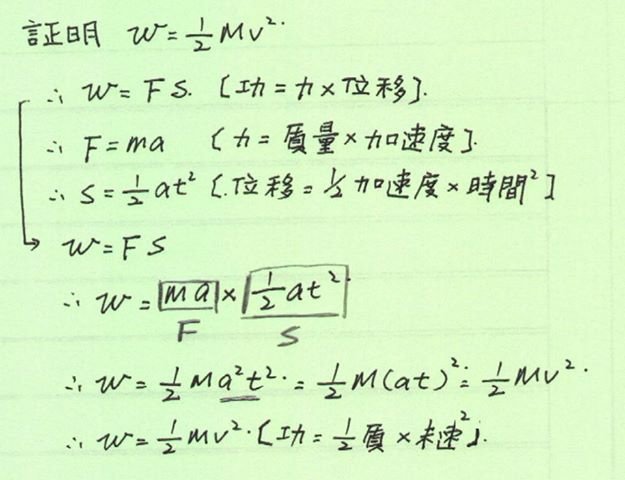 証明 W=½Mv².
∴ W=FS. [功=力×位移].
∴ F=ma [力=質量×加速度].
∴ S=½at² [位移=½加速度×時間²]
W=FS
∴ W=ma×½at².
F S
∴ W=½Ma²t².=½M(at)²=½Mv².
∴ W=½Mv².[功=½質×末速²].